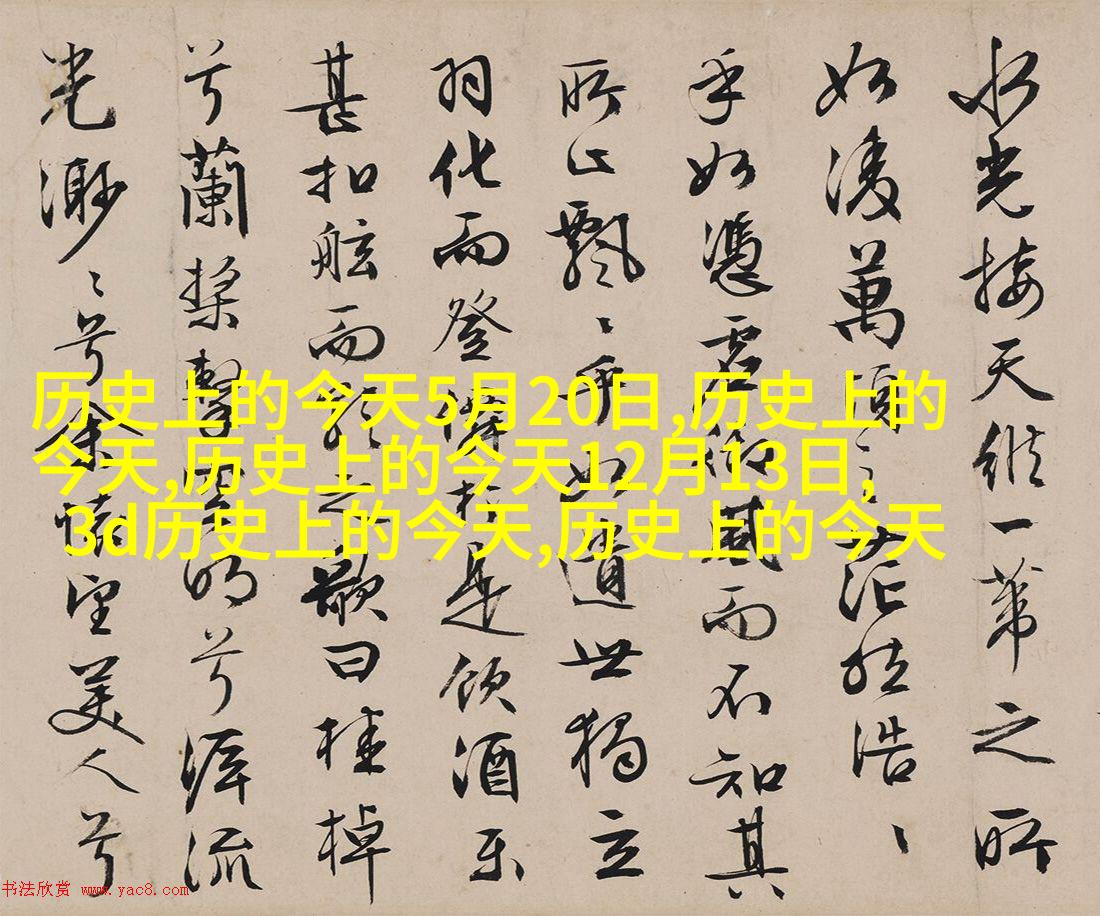 水光接天縱一葦之所
如凌萬頃之茫然浩〻
乎如憑虛御風而不知其
所止飄〻乎如遺世獨立
羽化而登僊於是飲酒樂
甚扣舷而歌之歌曰桂棹
兮蘭槳擊空明兮泝流
光渺〻兮余懷望美人兮
历史上的今天5月20日,历史上的
今天,历史上的今天12月13日,
3d历史上的今天,历史上的今天
书法欣赏 www.yac8.com